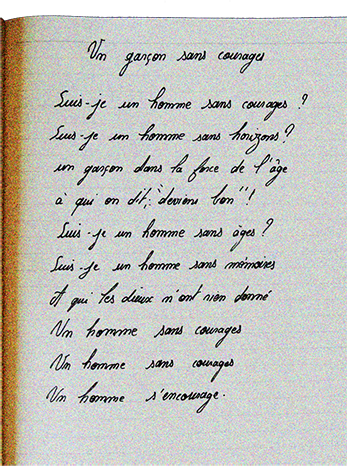 Un garçon sans courages
Suis-je un homme sans courages ?
Suis-je un homme sans horizons ?
un garçon dans la force de l'âge
à qui on dit, "deviens bon" !
Suis-je un homme sans âges ?
Suis-je un homme sans mémoires
et qui les dieux n'ont rien donné
Un homme sans courages
Un homme sans courages
Un homme s'encourage.